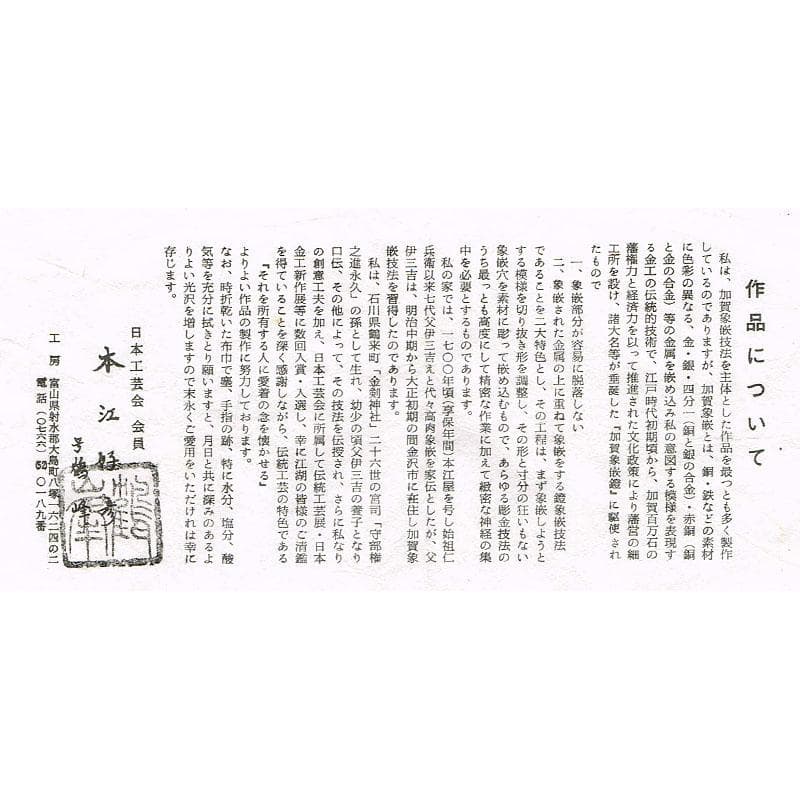 作品について
私は、加賀象嵌技法を主体とした作品を最っとも多く製作
しているのでありますが、加賀象嵌とは、銅・鉄などの素材
に色彩の異なる、金・銀・四分一(銅と銀の合金)・赤銅(銅
と金の合金)等の金属を嵌め込み私の意図する模様を表現す
る金工の伝統的技術で、江戸時代初期頃から、加賀百万石の
藩権力と経済力を以って推進された文化政策により藩営の細
工所を設け、諸大名等が垂涎した『加賀象嵌鐙』に駆使され
たもので
一、象嵌部分が容易に脱落しない
二、象嵌された金属の上に重ねて象嵌をする鐙象嵌技法
であることを二大特色とし、その工程は、まず象嵌しようと
する模様を切り抜き形を調整し、その形と寸分の狂いもない
象嵌穴を素材に彫って嵌め込むもので、あらゆる彫金技法の
うち最っとも高度にして精密な作業に加えて緻密な神経の集
中を必要とするものであります。
私の家では、一七〇〇年頃(享保年間)本江屋を号し始祖仁
兵衛以来七代父伊三吉えと代々高肉象嵌を家伝としたが、父
伊三吉は、明治中期から大正初期の間金沢市に在住し加賀象
嵌技法を習得したのであります。
私は、石川県鶴来町「金剣神社」二十六世の宮司「守部権
之進永久」の孫として生れ、幼少の頃父伊三吉の養子となり
口伝、その他によって、その技法を伝授され、さらに私なり
の創意工夫を加え、日本工芸会に所属して伝統工芸展・日本
金工新作展等に数回入賞・入選し、幸に江湖の皆様のご清鑑
を得ていることを深く感謝しながら、伝統工芸の特色である
『それを所有する人に愛着の念を懐かせる』
よりよい作品の製作に努力しております。
なお、時折乾いた布巾で塵、手指の跡、特に水分、塩分、酸
気等を充分に拭きとり願いますと、月日と共に深みのあるよ
りよい光沢を増しますので末永くご愛用をいただければ幸に
存じます。
日本工芸会 会員
本江
号鶴峰
工房 富山県射水郡大島町八塚一六二四の二
電話(〇七六六)52〇一八九番